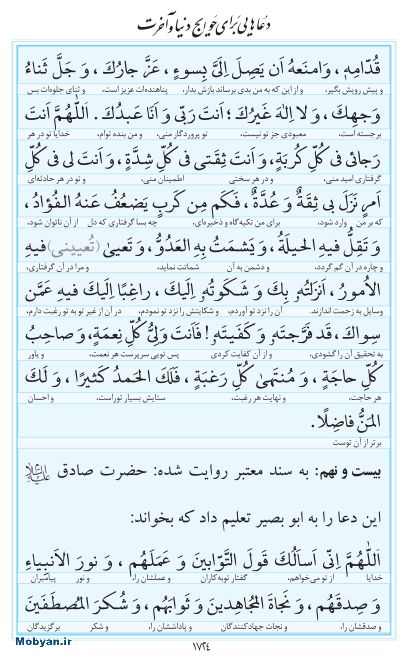 دعاهایی برای حوایج دنیا و آخرت
قُدّامِهِ، وَامنَعهُ اَن یَصِلَ اِلَیَّ بِسوءٍ، عَزَّ جارُكَ، وَ جَلَّ ثَناءُ
و پیش رویش بگیر، و از این که به من بدی برساند بازش بدار، پناهنده‌ات عزیز است، و ثنای جلوه‌ات بس
وَجهِكَ، وَ لا اِلٰهَ غَیرُكَ؛ اَنتَ رَبّی وَ اَنَا عَبدُكَ. اَللّٰهُمَّ اَنتَ
برجسته است، معبودی جز تو نیست، تو پروردگار منی، و من بنده توام، خدایا تو در هر
رَجائی فی كُلِّ كُربَةٍ، وَ اَنتَ ثِقَتی فی كُلِّ شِدَّةٍ، وَ اَنتَ لی فی كُلِّ
گرفتاری امید منی، و در هر سختی اطمینان منی، و تو در هر حادثه‌ای
اَمرٍ نَزَلَ بی ثِقَةٌ وَ عُدَّةٌ، فَكَم مِن كَربٍ یَضعُفُ عَنهُ الفُؤادُ،
که بر من وارد شود، برای من تکیه‌گاه و ذخیره‌ای، چه بسا گرفتاری که دل از آن ناتوان شود،
وَ تَقِلُّ فیهِ الحیلَةُ، وَ یَشمَتُ بِهِ العَدُوُّ، وَ تَعییٰ (تُعیینی) فیهِ
و چاره در آن گم گردد، و دشمن به آن شماتت نماید، و مرا در آن گرفتاری،
الاُمورُ، اَنزَلتُهُ بِكَ وَ شَكَوتُهُ اِلَیكَ، راغِبًا اِلَیكَ فیهِ عَمَّن
وسایل به زحمت اندازند. آن را نزد تو آوردم، و شکایتش را نزد تو نمودم، در آن از غیر تو به تو رغبت دارم،
سِواكَ، قَد فَرَّجتَهُ وَ كَفَیتَهُ! فَاَنتَ وَلیُّ كُلِّ نِعمَةٍ، وَ صاحِبُ
به تحقیق آن را گشودی، و از آن کفایت کردی پس تویی سرپرست هر نعمت، و یاور
كُلِّ حاجَةٍ، وَ مُنتَهیٰ كُلِّ رَغبَةٍ، فَلَكَ الحَمدُ كَثیرًا، وَ لَكَ
هر حاجت، و نهایت هر رغبت، ستایش بسیار توراست، و احسان
المَنُّ فاضِلًا.
برتر از آن توست
بیست و نهم: به سند معتبر روایت شده: حضرت صادق علیه السلام
این دعا را به ابو بصیر تعلیم داد که بخواند:
اَللّٰهُمَّ اِنّی اَسأَلُكَ قَولَ التَّوّابینَ وَ عَمَلَهُم، وَ نورَ الاَنبِیاءِ
خدایا از تو می‌خواهم، گفتار توبه‌کاران و عملشان را، و نور پیامبران
وَ صِدقَهُم، وَ نَجاةَ المُجاهِدینَ وَ ثَوابَهُم، وَ شُكرَ المُصطَفَینَ
و صدقشان را، و نجات جهادکنندگان و پاداششان را، و شکر برگزیدگان
۱۷۲۴
Mobyan.ir